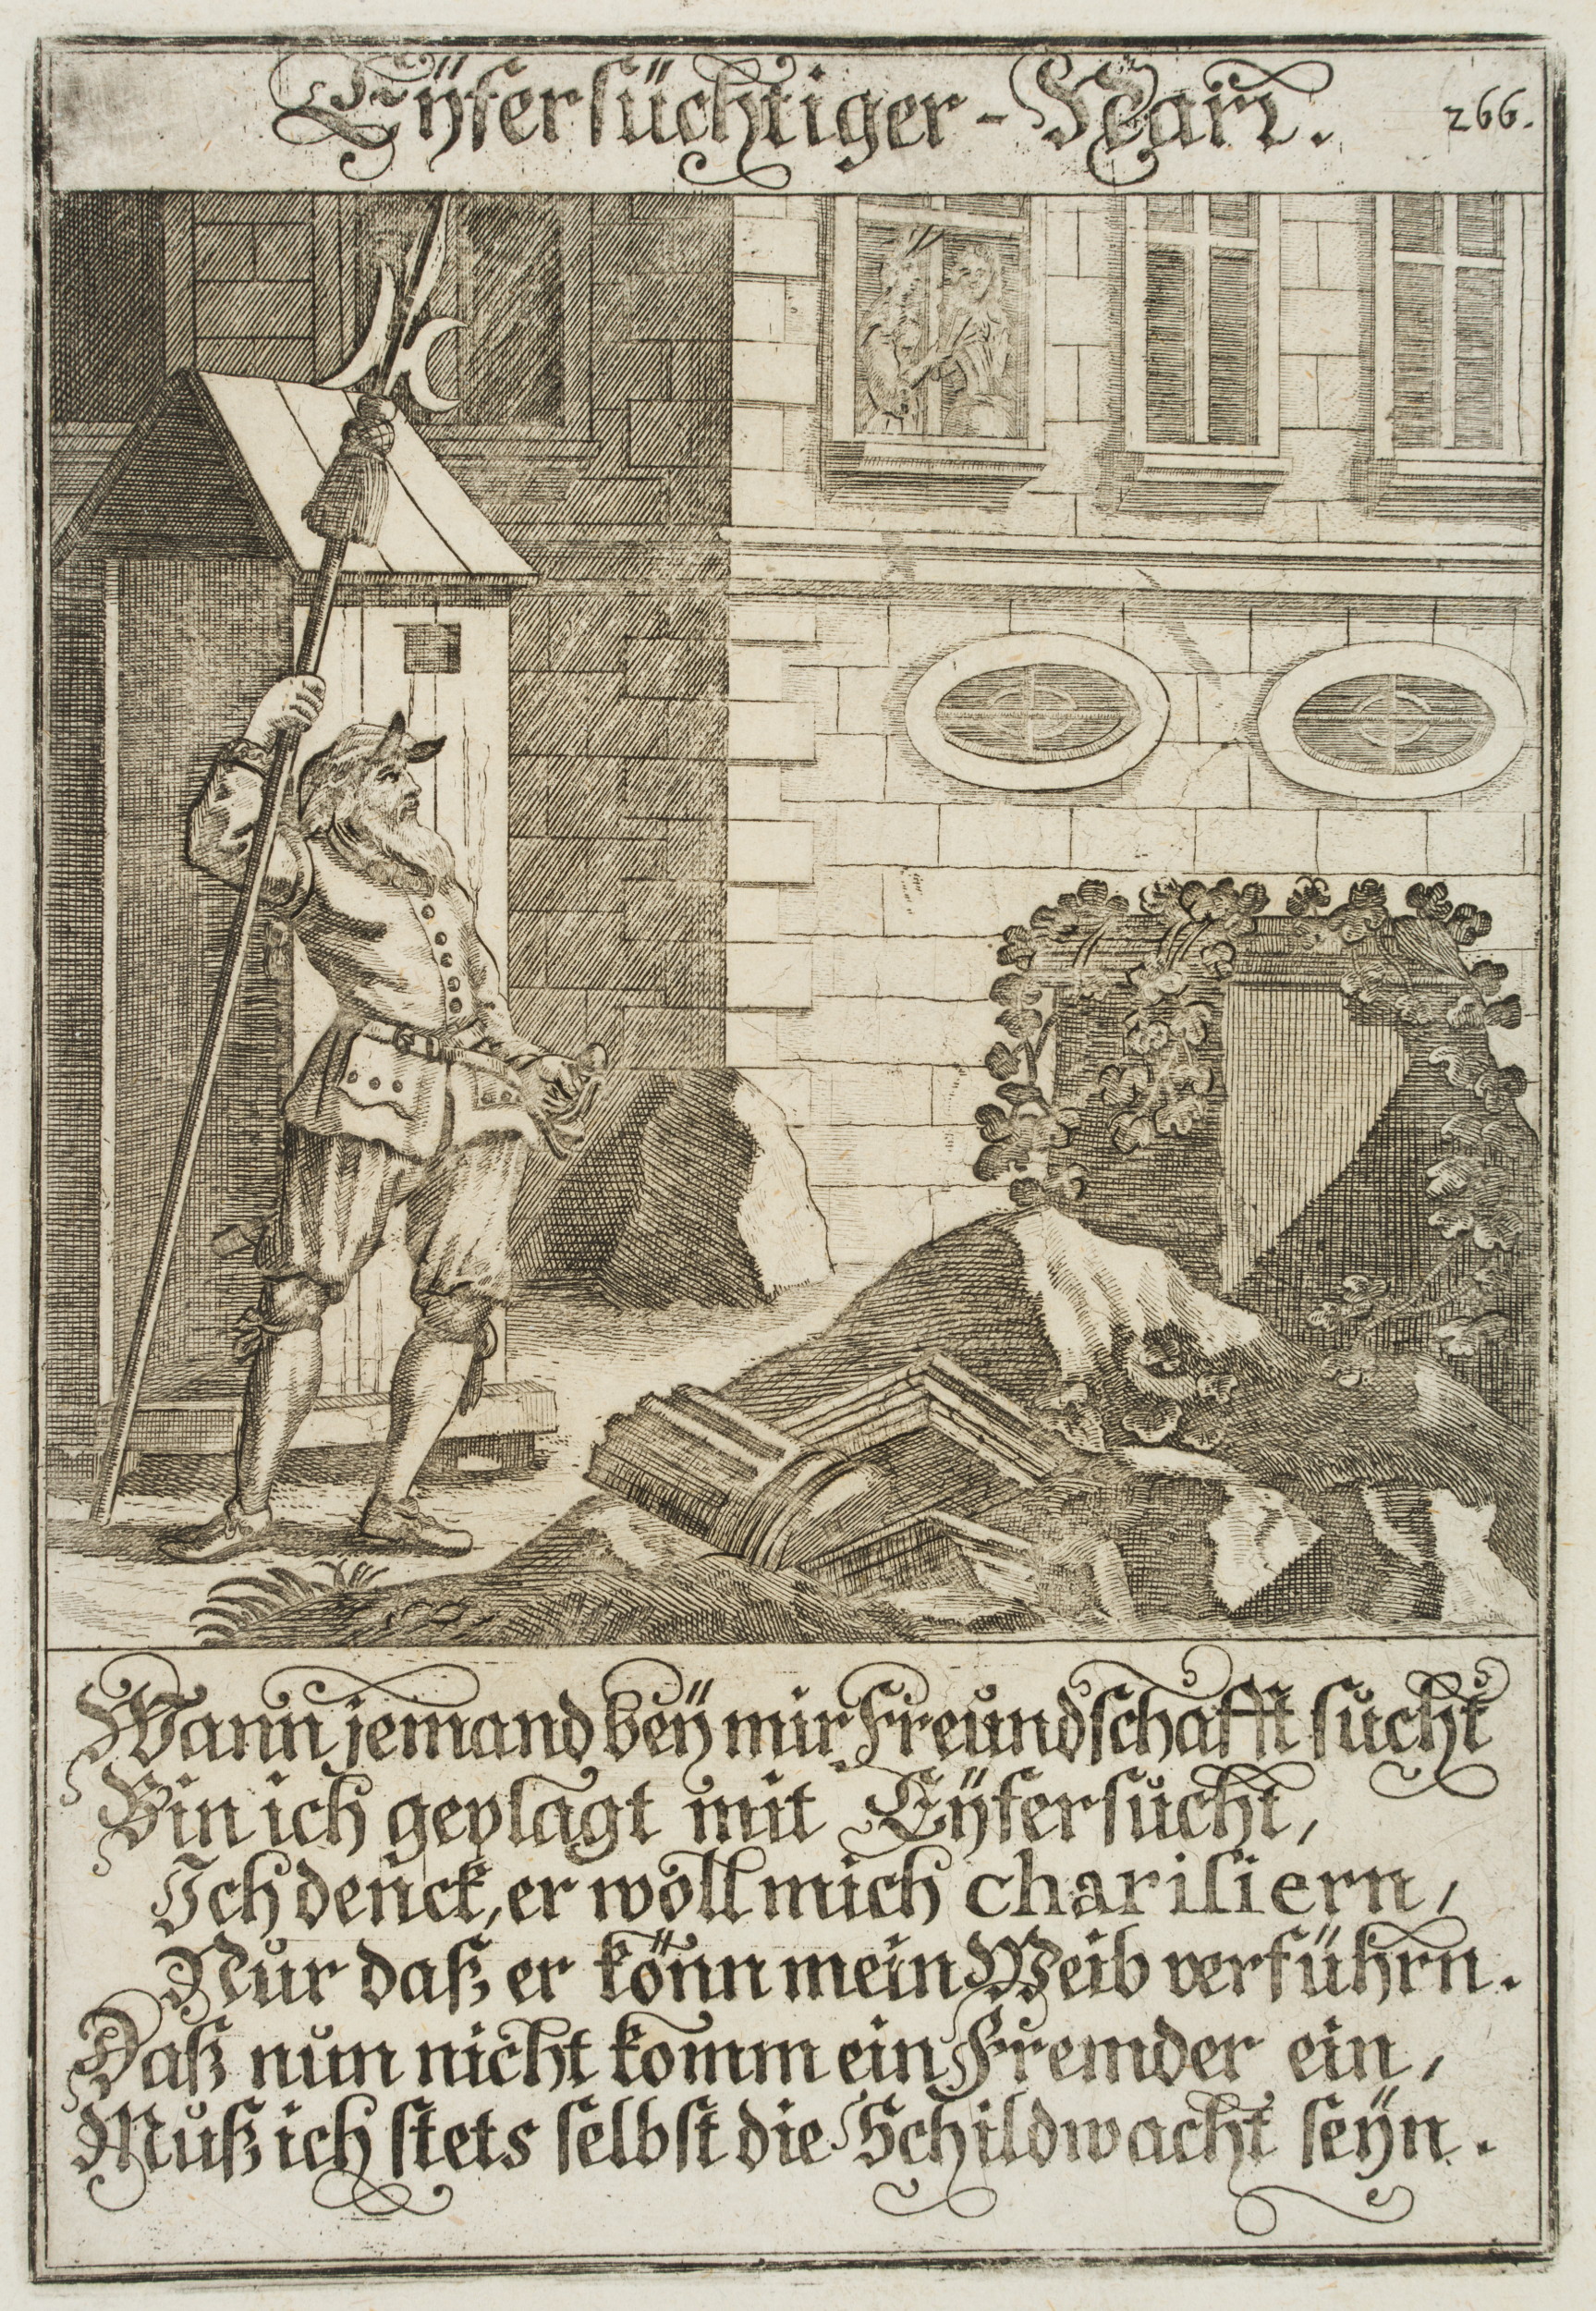 Eÿfersüchtiger-Narr.
266.
Wann jemand beÿ mir Freundschafft sucht
Bin ich geplagt mit Eÿfersucht,
Ich denck, er woll mich chariliern,
Nur daß er könn mein Weib verführn.
Daß nun nicht komm ein Fremder ein,
Muß ich stets selbst die Schildwacht seÿn.